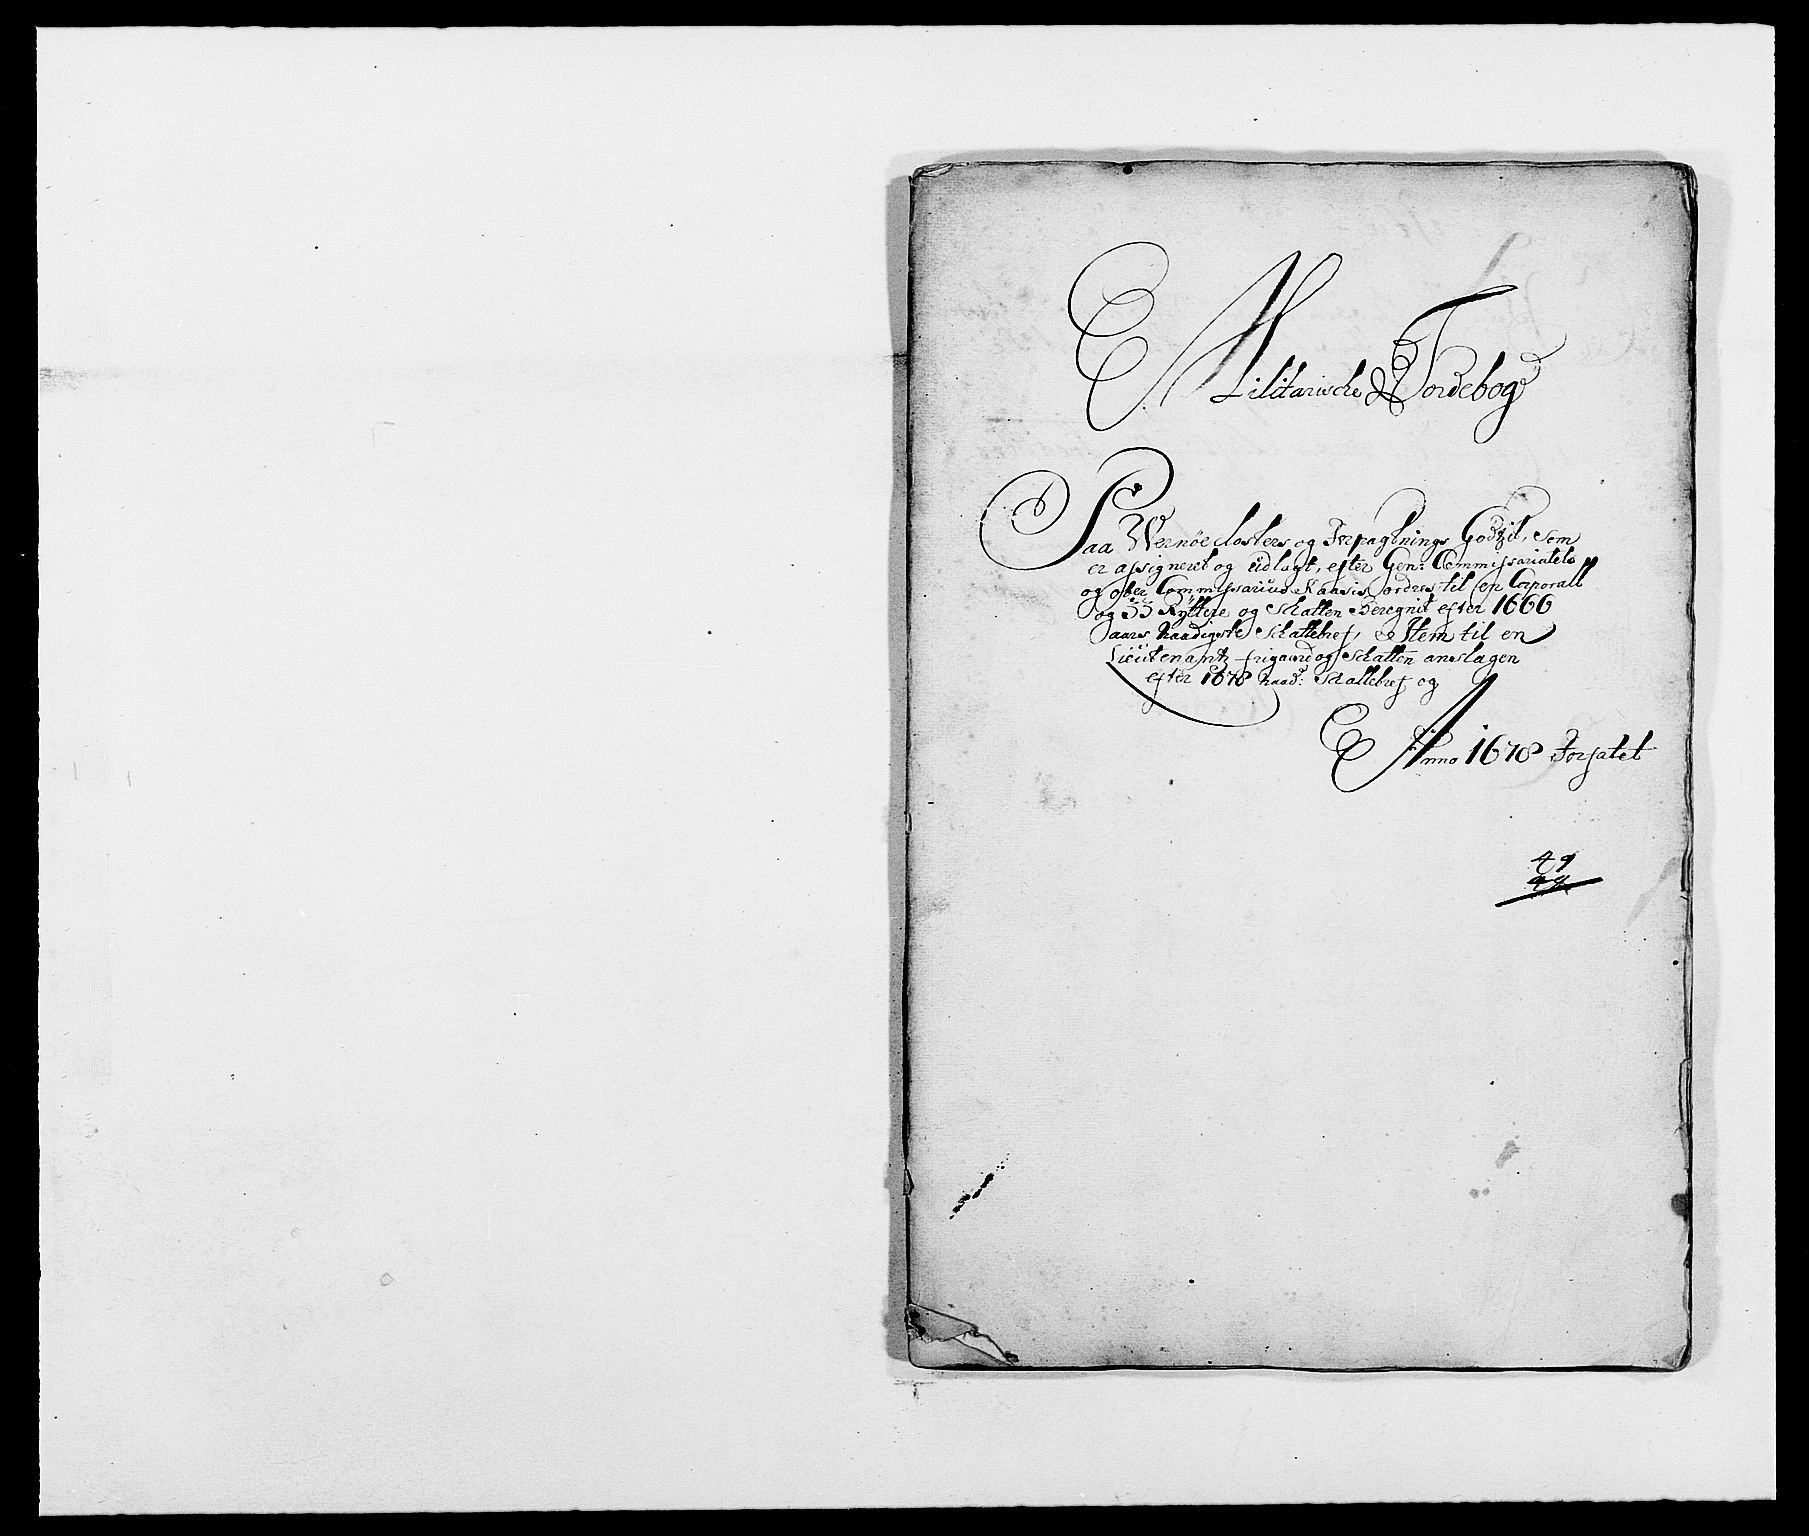 En Militarische Jordebog
Paa Wernøe Closters og Forpagtnings Godtzit, som
er assigneret og üdlagt, efter Gen: Commissariatets
og ober Commissarius Kaasis ordres til en Corporall
og 33 Rÿttere og Schatten Beregnit efter 1666
aars Naadigste Schattebref, Item til en
Lieütenantz frigaard og Schatten anslagen
efter 1678 naad: Schattebref og
Anno 1678 Forfatet
49